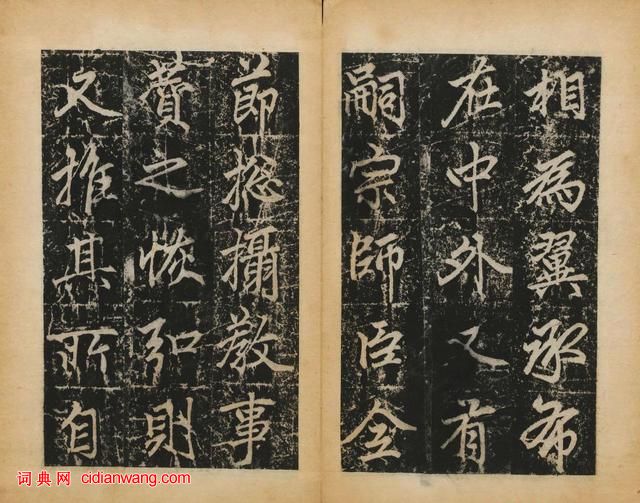 相為翼承布
在中外又有
嗣宗師臣全
節摠攝教事
賛之恢弘則
又推其所自
词典网 cidianwang.com